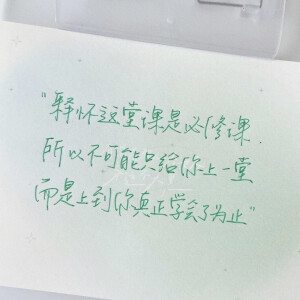 "释怀这堂课是必修课.
所以不可能只给你上一堂
而是上到你真正学会了为止"